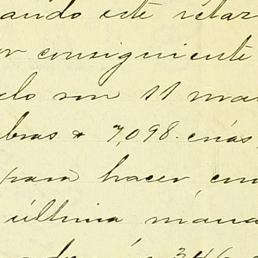 ando este relar
or consiguiente
elo son 11 ma
bras & 7,098. cñas
para hacer, em
última mana
346